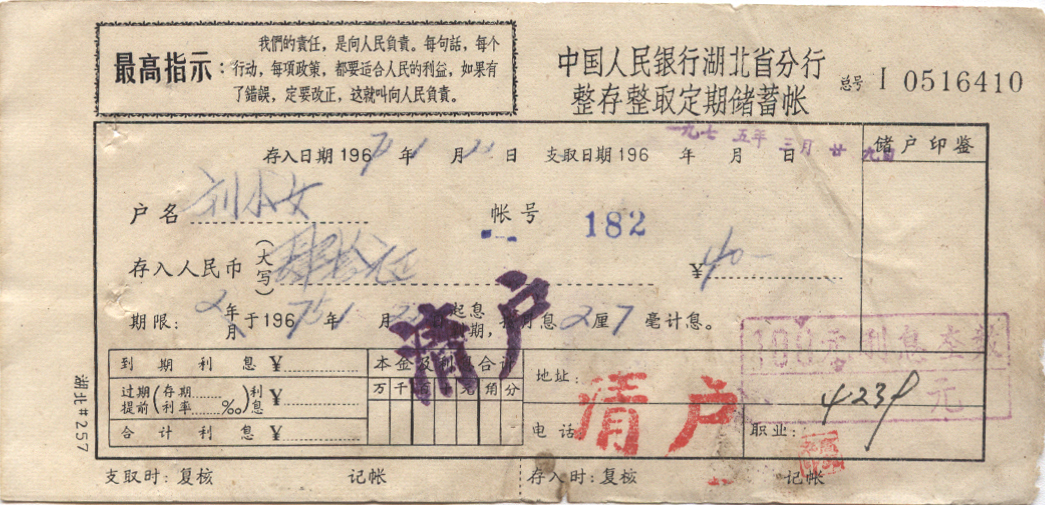 最高指示:
我們的責任，是向人民負責。每句話，每个
行动，每項政策，都要适合人民的利益，如果有
了錯誤，定要改正，这就叫向人民負責。
中国人民银行湖北省分行
整存整取定期储蓄帐
总号 I 0516410
存入日期196 年 1 月 日 支取日期196 年 月 日
一九七五年三月廿九日
储户印鉴
户名 刘小女 帐号 182
存入人民币(大写) 肆拾元 ¥40-
期限: 2年月于1967 年1月2 起息 期, 月息2厘7毫计息。
清户
到期利息¥
本金及利 合计
过期 提前(存期 利率 ‰)利息¥
万千 元角分
合计利息¥
地址:
100元利息查教
元
4239
清户
电话
职业:
湖北#257
支取时:复核 记帐 存入时:复核 记帐